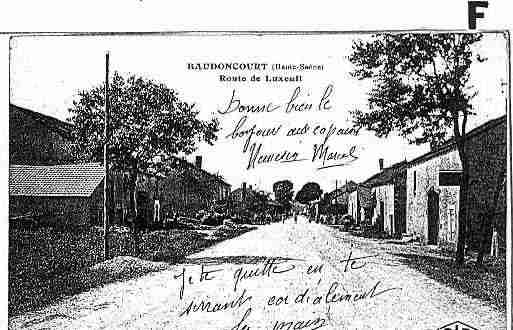 F
BAUDONCOURT (Haute-Saône)
Route de Luxeuil
Donne bien le
bonjour aux copains
Marcel
je te quitte en te
serrant cordialement
la main